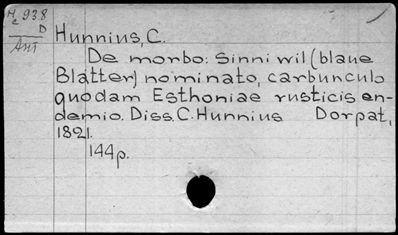 H₂ 938
D
Ant
Hunnius, C.
De morbo: Sinni wil (blaue
Blatter) nominato, carbunculo
quodam Esthoniae rusticis en-
demio. Diss. C. Hunnius Dorpat,
1821.
144p.